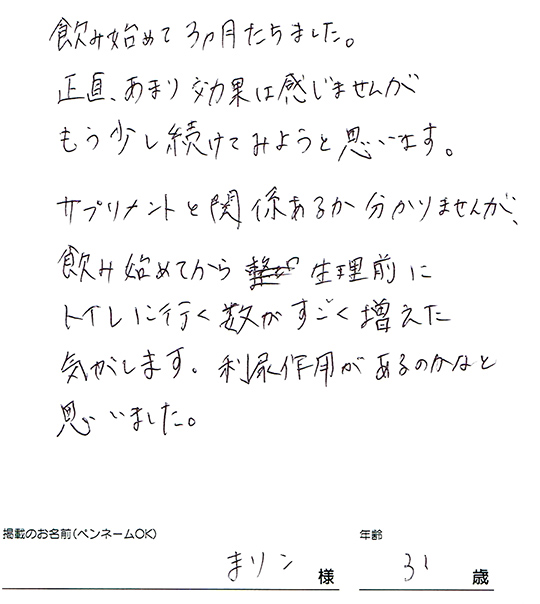 飲み始めて3ヵ月たちました。
正直、あまり効果は感じませんが
もう少し続けてみようと思います。
サプリメントと関係あるか分かりませんが、
飲み始めてから 生理前に
トイレに行く数がすごく増えた
気がします。利尿作用があるのかなと
思いました。
掲載のお名前(ペンネームOK) 年齢
まリン 様 31 歳